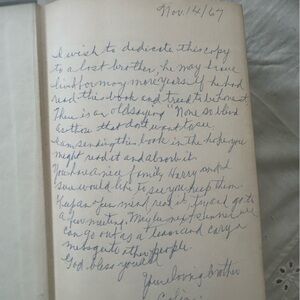 Nov. 14/67
I wish to dedicate this copy
to a lost brother, he may have
lived for many more years if he had
read this book and tried to be honest.
There is an old saying "None so blind
as those that don't want to see.
I am sending this book in the hope you
might read it and absorb it.
You have a nice family Harry and I
sure would like to see you keep them.
Keep an open mind read it, try and go to
a few meeting. Maybe next summer we
can go out as a team and carry a
message to other people.
God bless you all
Your loving brother